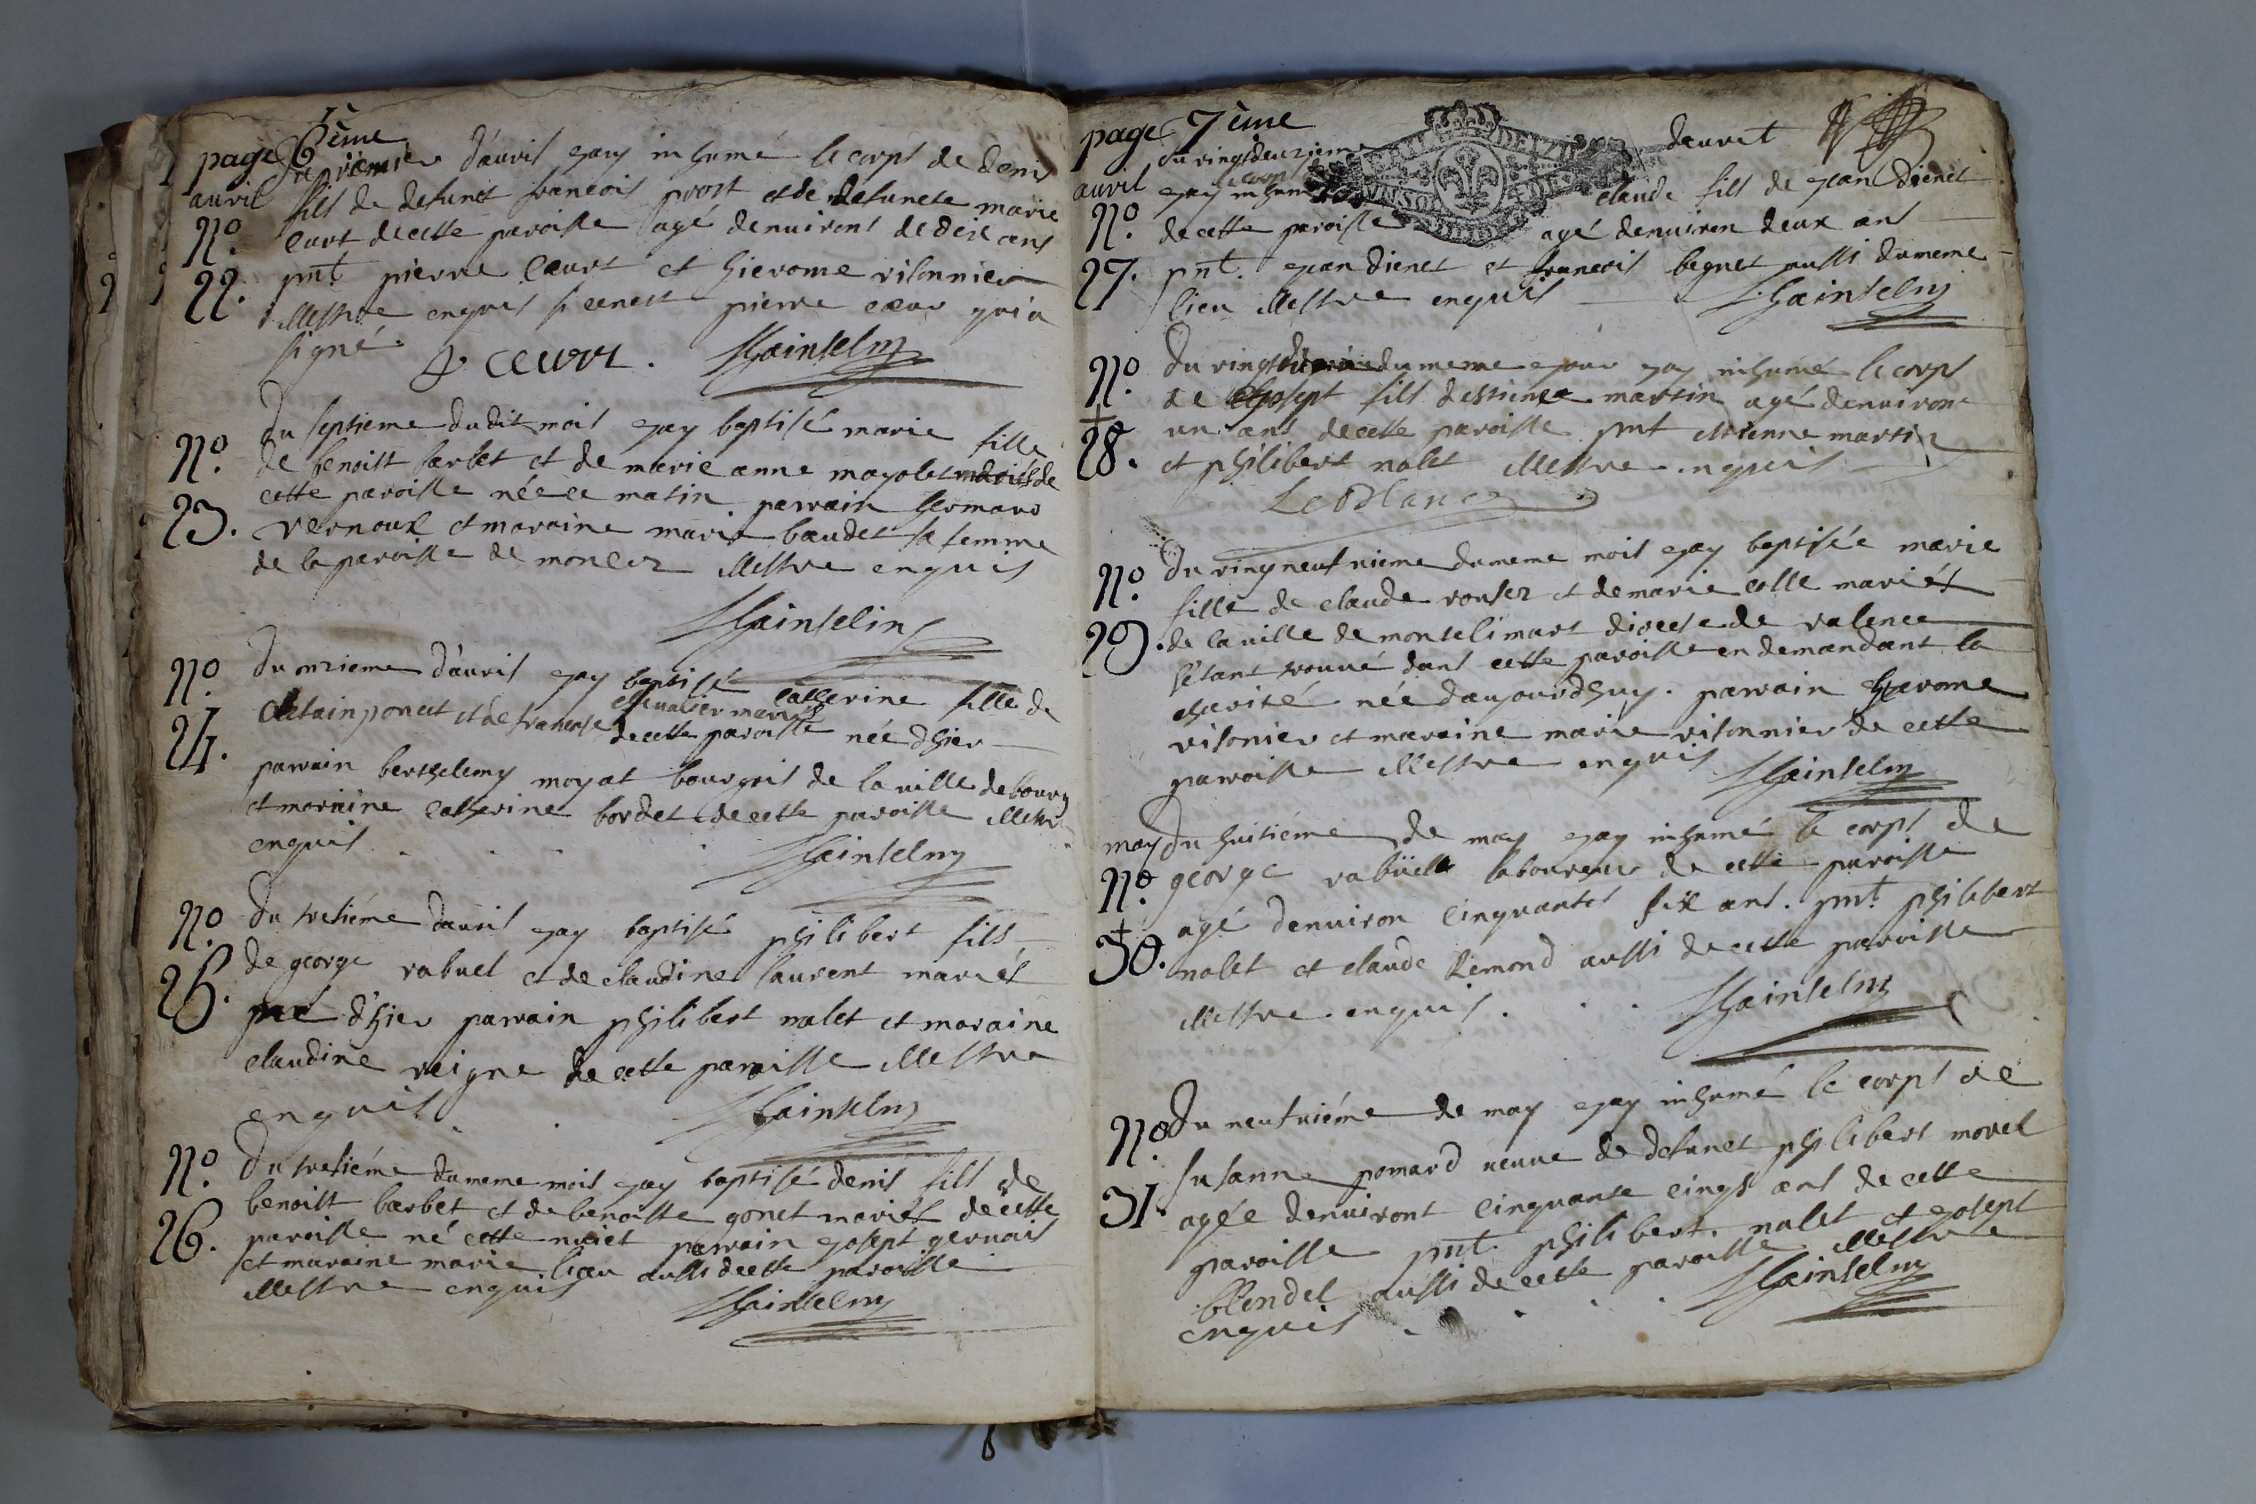 page 6ème
avril
premier d'avril j'ay inhumé le corps de denis
fils de defunct francois prost et de defuncte marie
Cuvt de cette paroisse agé d'enuiront de dix ans
N° 22. pnt. pierre Cœurt et hierome visonnier
illestre enquis si cenest pierre cœur qui a
signé.
P ceurt. Hainselin
N° 23. Du septieme dudit mois j'ay baptisé marie fille
de benoist barbet et de marie anne mayolet mariés de
cette paroisse née ce matin parrain
vernoux et maraine marie baudet sa femme
de la paroisse de moncez illestre enquis
Hainselin
N° 24. Du onzieme d'auril j'ay baptisé catherine fille de
poncet et de francoise chevalier mariés
de cette paroisse née d'hier
parrain berthelemy moyat bourgois de la ville de bourg
et maraine catherine bordet de cette paroisse illestr
enquis.
Hainselin
N° 25. Du tresiéme dauril j'ay baptisé philibert fils
de george rabuel et de claudine laurent mariés
né d'hier parrain philibert nalet et maraine
claudine reigne de cette paroisse illestre
enquis.
Hainselin
N° 26. Du tresiéme du meme mois j'ay baptisé denis fils de
benoist barbet et de benoiste gonet mariés de cette
paroisse né cette nuict parrain josept gervais
et maraine marie lieau aussi de cette paroisse
illestre enquis
Hainselin
page 7ème
avril
N° 27. du vingtdeuzieme d'auril
j'ay inhumé le corps claude fils de jean Dienet
de cette paroisse agé denuiron deux ans
pnt. jean dienet et francois begnet aussi du meme
lieu illestre enquis Hainselin
N° 28. Du vingt du meme jour j'ay inhumé le corps
de josept fils destienne martin agé denuiron
un ans de cette paroisse pnt etienne martin
et philibert nalet illestre enquis
LeBlanc
N° 29. Du ving neufuieme du meme mois j'ay baptisée marie
fille de claude rouser et de marie colle mariés
de la ville de montelimart diocese de valence
s'étant trouué dans cette paroisse en demandant la
charité née d'aujourdhuy. parrain hyerome
visonier et maraine marie visonnier de cette
paroisse illestre enquis
Hainselin
may
N° 30. Du huitiéme de may j'ay inhumé le corps de
george rabüel laboureur de cette paroisse
agé denuiron cinquantes six ans. pnt. philibert
nalet et claude Remond aussi de cette paroisse
illestre enquis.
Hainselin
N° 31. Du neufuiéme de may j'ay inhumé le corps de
susanne pomard veuue de defunct philibert morel
agée denuiront cinquante cings ans de cette
paroisse pnt. philibert nalet et josept
blendel aussi de cette paroisse illestre
enquis.
Hainselin